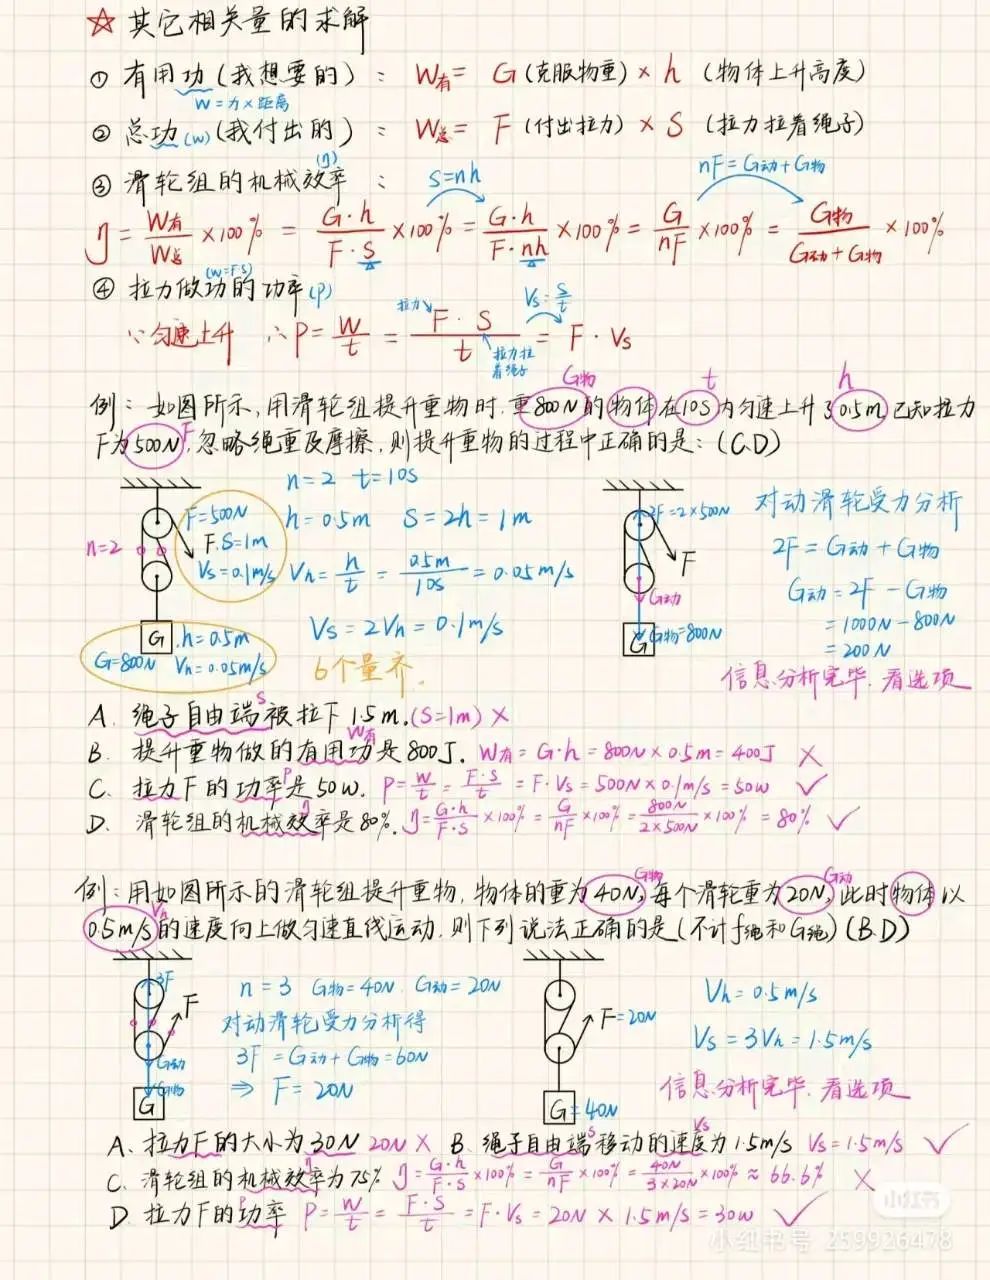 ☆ 其它相关量的求解
① 有用功(我想要的): W有= G(克服物重)×h (物体上升高度)
W=力×距离
② 总功(W)(我付出的): W总= F(付出拉力)×S (拉力拉着绳子)
③ 滑轮组的机械效率(η): S=nh nF=G动+G物
η=W有/W总×100%=G·h/F·S×100%=G·h/F·nh×100%=G/nF×100%=G物/G动+G物×100%
(W=FS)
④ 拉力做功的功率(P) 拉力 Vs=S/t
∵匀速上升 ∴P=W/t=F·S/t=F·Vs
拉力拉着绳子
G物 t h
例:如图所示,用滑轮组提升重物时,重800N的物体在10S内匀速上升了0.5m,已知拉力
F为500N,F忽略绳重及摩擦,则提升重物的过程中正确的是:(C.D)
n=2 t=10S
n=2 F=500N h=0.5m S=2h=1m 2F=2×500N 对动滑轮受力分析
F.S=1m F 2F=G动+G物
Vs=0.1m/s Vh=h/t=0.5m/10S=0.05m/s G动 G动=2F-G物
G .h=0.5m Vs=2Vh=0.1m/s G G物=800N =1000N-800N
G=800N Vh=0.05m/s 6个量齐. =200N
信息分析完毕.看选项
A. 绳子自由端S被拉下1.5m.(S=1m) ×
B. 提升重物做的有用功W有是800J. W有=G·h=800N×0.5m=400J ×
C. 拉力F的功率P是50W. P=W/t=F·S/t=F·Vs=500N×0.1m/s=50W ✓
D. 滑轮组的机械效率η是80%. η=G·h/F·S×100%=G/nF×100%=800N/2×500N×100%=80% ✓
G物 G动
例:用如图所示的滑轮组提升重物,物体的重为40N,每个滑轮重为20N,此时物体以
Vh
0.5m/s的速度向上做匀速直线运动,则下列说法正确的是(不计f绳和G绳)(B.D)
3F F n=3 G物=40N. G动=20N Vh=0.5m/s
对动滑轮受力分析得 F=20N
G动 3F=G动+G物=60N Vs=3Vh=1.5m/s
G物 ⇒ F=20N 信息分析完毕.看选项
G G=40N
A. 拉力F的大小为30N 20N × B. 绳子自由端S移动的速度Vs为1.5m/s Vs=1.5m/s ✓
C. 滑轮组的机械效率η为75% η=G·h/F·S×100%=G/nF×100%=40N/3×20N×100%≈66.6% ×
D. 拉力F的功率P P=W/t=F·S/t=F·Vs=20N×1.5m/s=30W ✓
小红书
小红书号 259926478